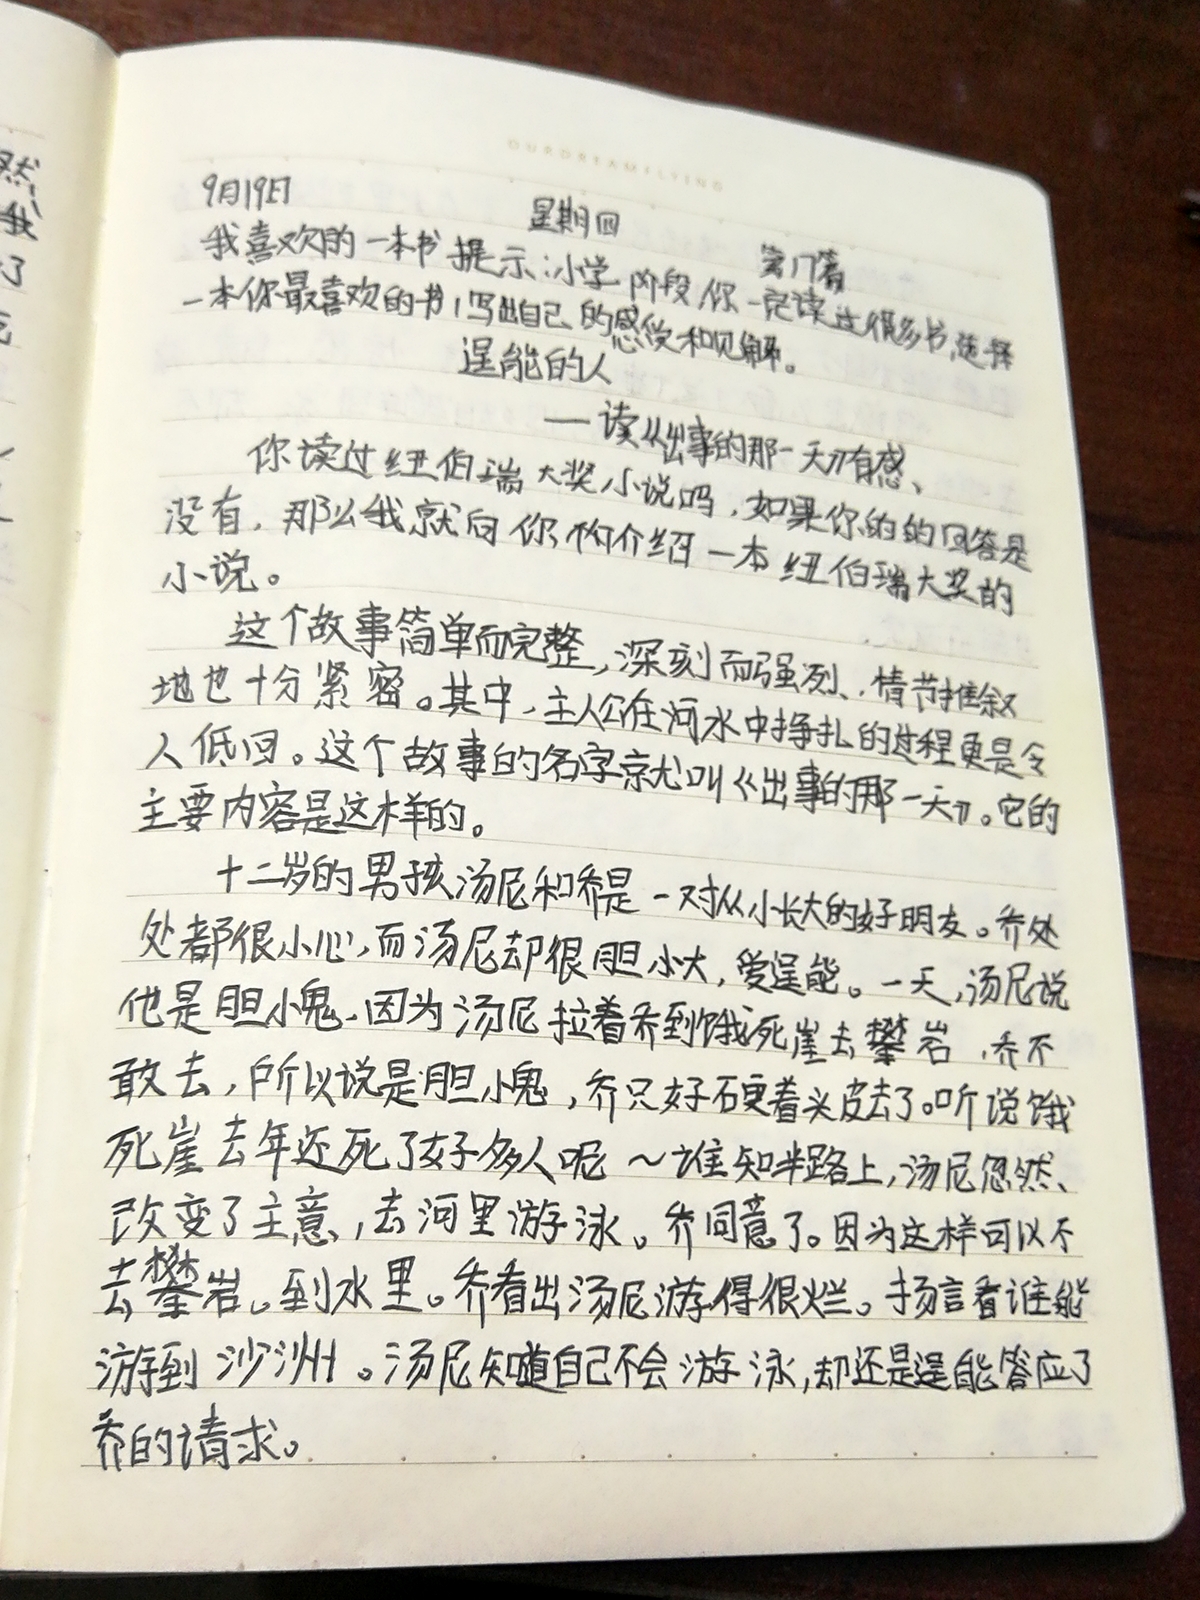 OURDREAMFLYING
9月19日 星期四 第17篇
我喜欢的一本书 提示:小学阶段,你一定读过很多书,选择
一本你最喜欢的书,写出自己的感受和见解。
逞能的人
——读《出事的那一天》有感、
你读过纽伯瑞大奖小说吗,如果你的的回答是
没有,那么我就向你构介绍一本纽伯瑞大奖的
小说。
这个故事简单而完整,深刻而强烈、,情节推叙
地也十分紧密。其中,主人公在河水中挣扎的过程更是令
人低回。这个故事的名字就叫《出事的那一天》。它的
主要内容是这样的。
十二岁的男孩汤尼和乔是一对从小长大的好朋友。乔处
处都很小心,而汤尼却很胆小大,爱逞能。一天,汤尼说
他是胆小鬼,因为汤尼拉着乔到饿死崖去攀岩,乔不
敢去,所以说是胆小鬼,乔只好硬着头皮去了。听说饿
死崖去年还死了好多人呢~谁知半路上,汤尼忽然、
改变了主意,去河里游泳。乔同意了。因为这样可以不
去攀岩。到水里。乔看出汤尼游得很烂。扬言看谁能
游到沙洲。汤尼知道自己不会游泳,却还是逞能答应了
乔的请求。
然、
我
了